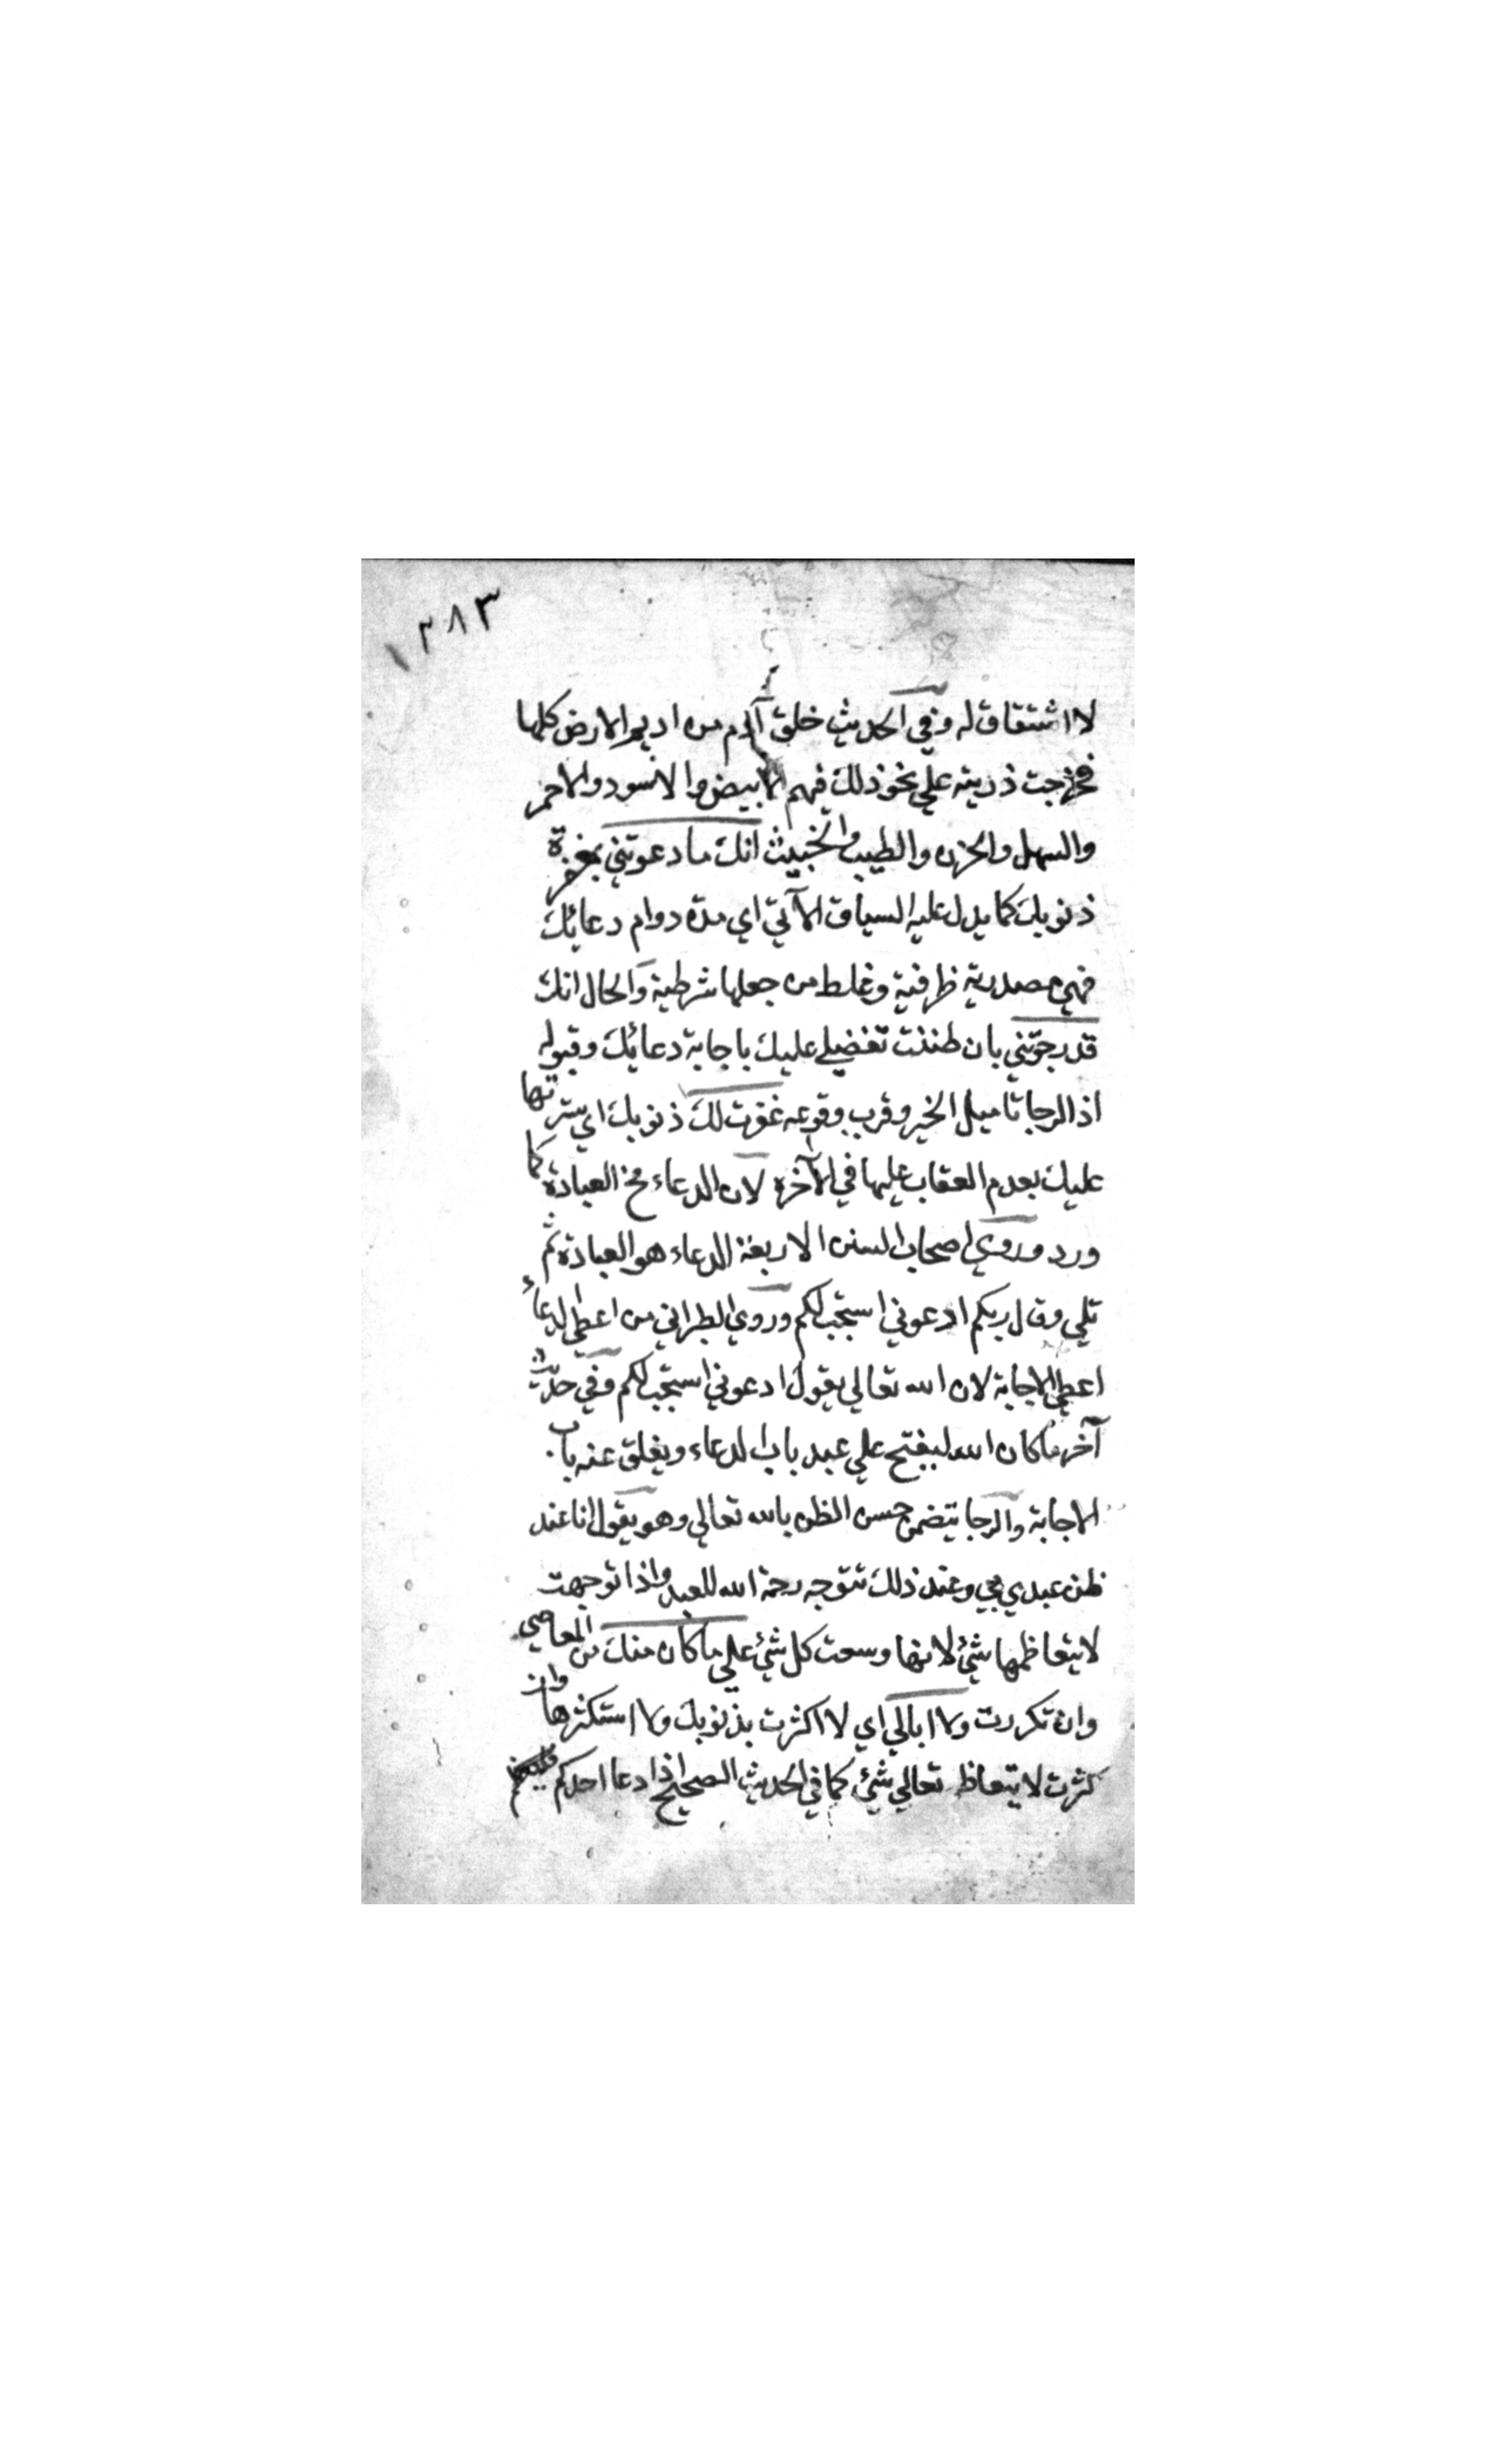 ٣٨٣
لا اشتقاق له وفي الحديث خلق آدم من اديم الارض كلها
فخرجت ذريته علي نحو ذلك فيهم الابيض والاسود والاحمر
والسهل والحزن والطيب والخبيث انك ما دعوتني بمغفرة
ذنوبك كما يدل عليه السياق الآتي اي مدة دوام دعائك
فهي مصدرية ظرفية وغلط من جعلها شرطية والحال انك
قد رجوتني بان ظننت تفضلي عليك باجابة دعائك وقبوله
اذ الرجا تاميل الخير وقرب وقوعه غفرت لك ذنوبك اي سترتها
عليك بعدم العقاب عليها في الآخرة لان الدعاء مخ العبادة كما
ورد وروي اصحاب السنن الاربعة الدعاء هو العبادة ثم
تلي وقال ربكم ادعوني استجب لكم وروي الطبراني من اعطي الدعاء
اعطي الاجابة لان الله تعالي يقول ادعوني استجب لكم وفي حديث
آخر ما كان الله ليفتح علي عبد باب الدعاء ويغلق عنه باب
الاجابة والرجا يتضمن حسن الظن بالله تعالي وهو يقول انا عند
ظن عبدي بي وعند ذلك تتوجه رحمة الله للعبد واذا توجهت
لا يتعاظمها شئ لانها وسعت كل شئ علي ما كان منك من المعاصي
وان تكررت ولا ابالي اي لا اكثرت بذنوبك ولا استكثرها وان
كثرت لا يتعاظ تعالي شئ كما في الحديث الصحيح اذا دعا احدكم